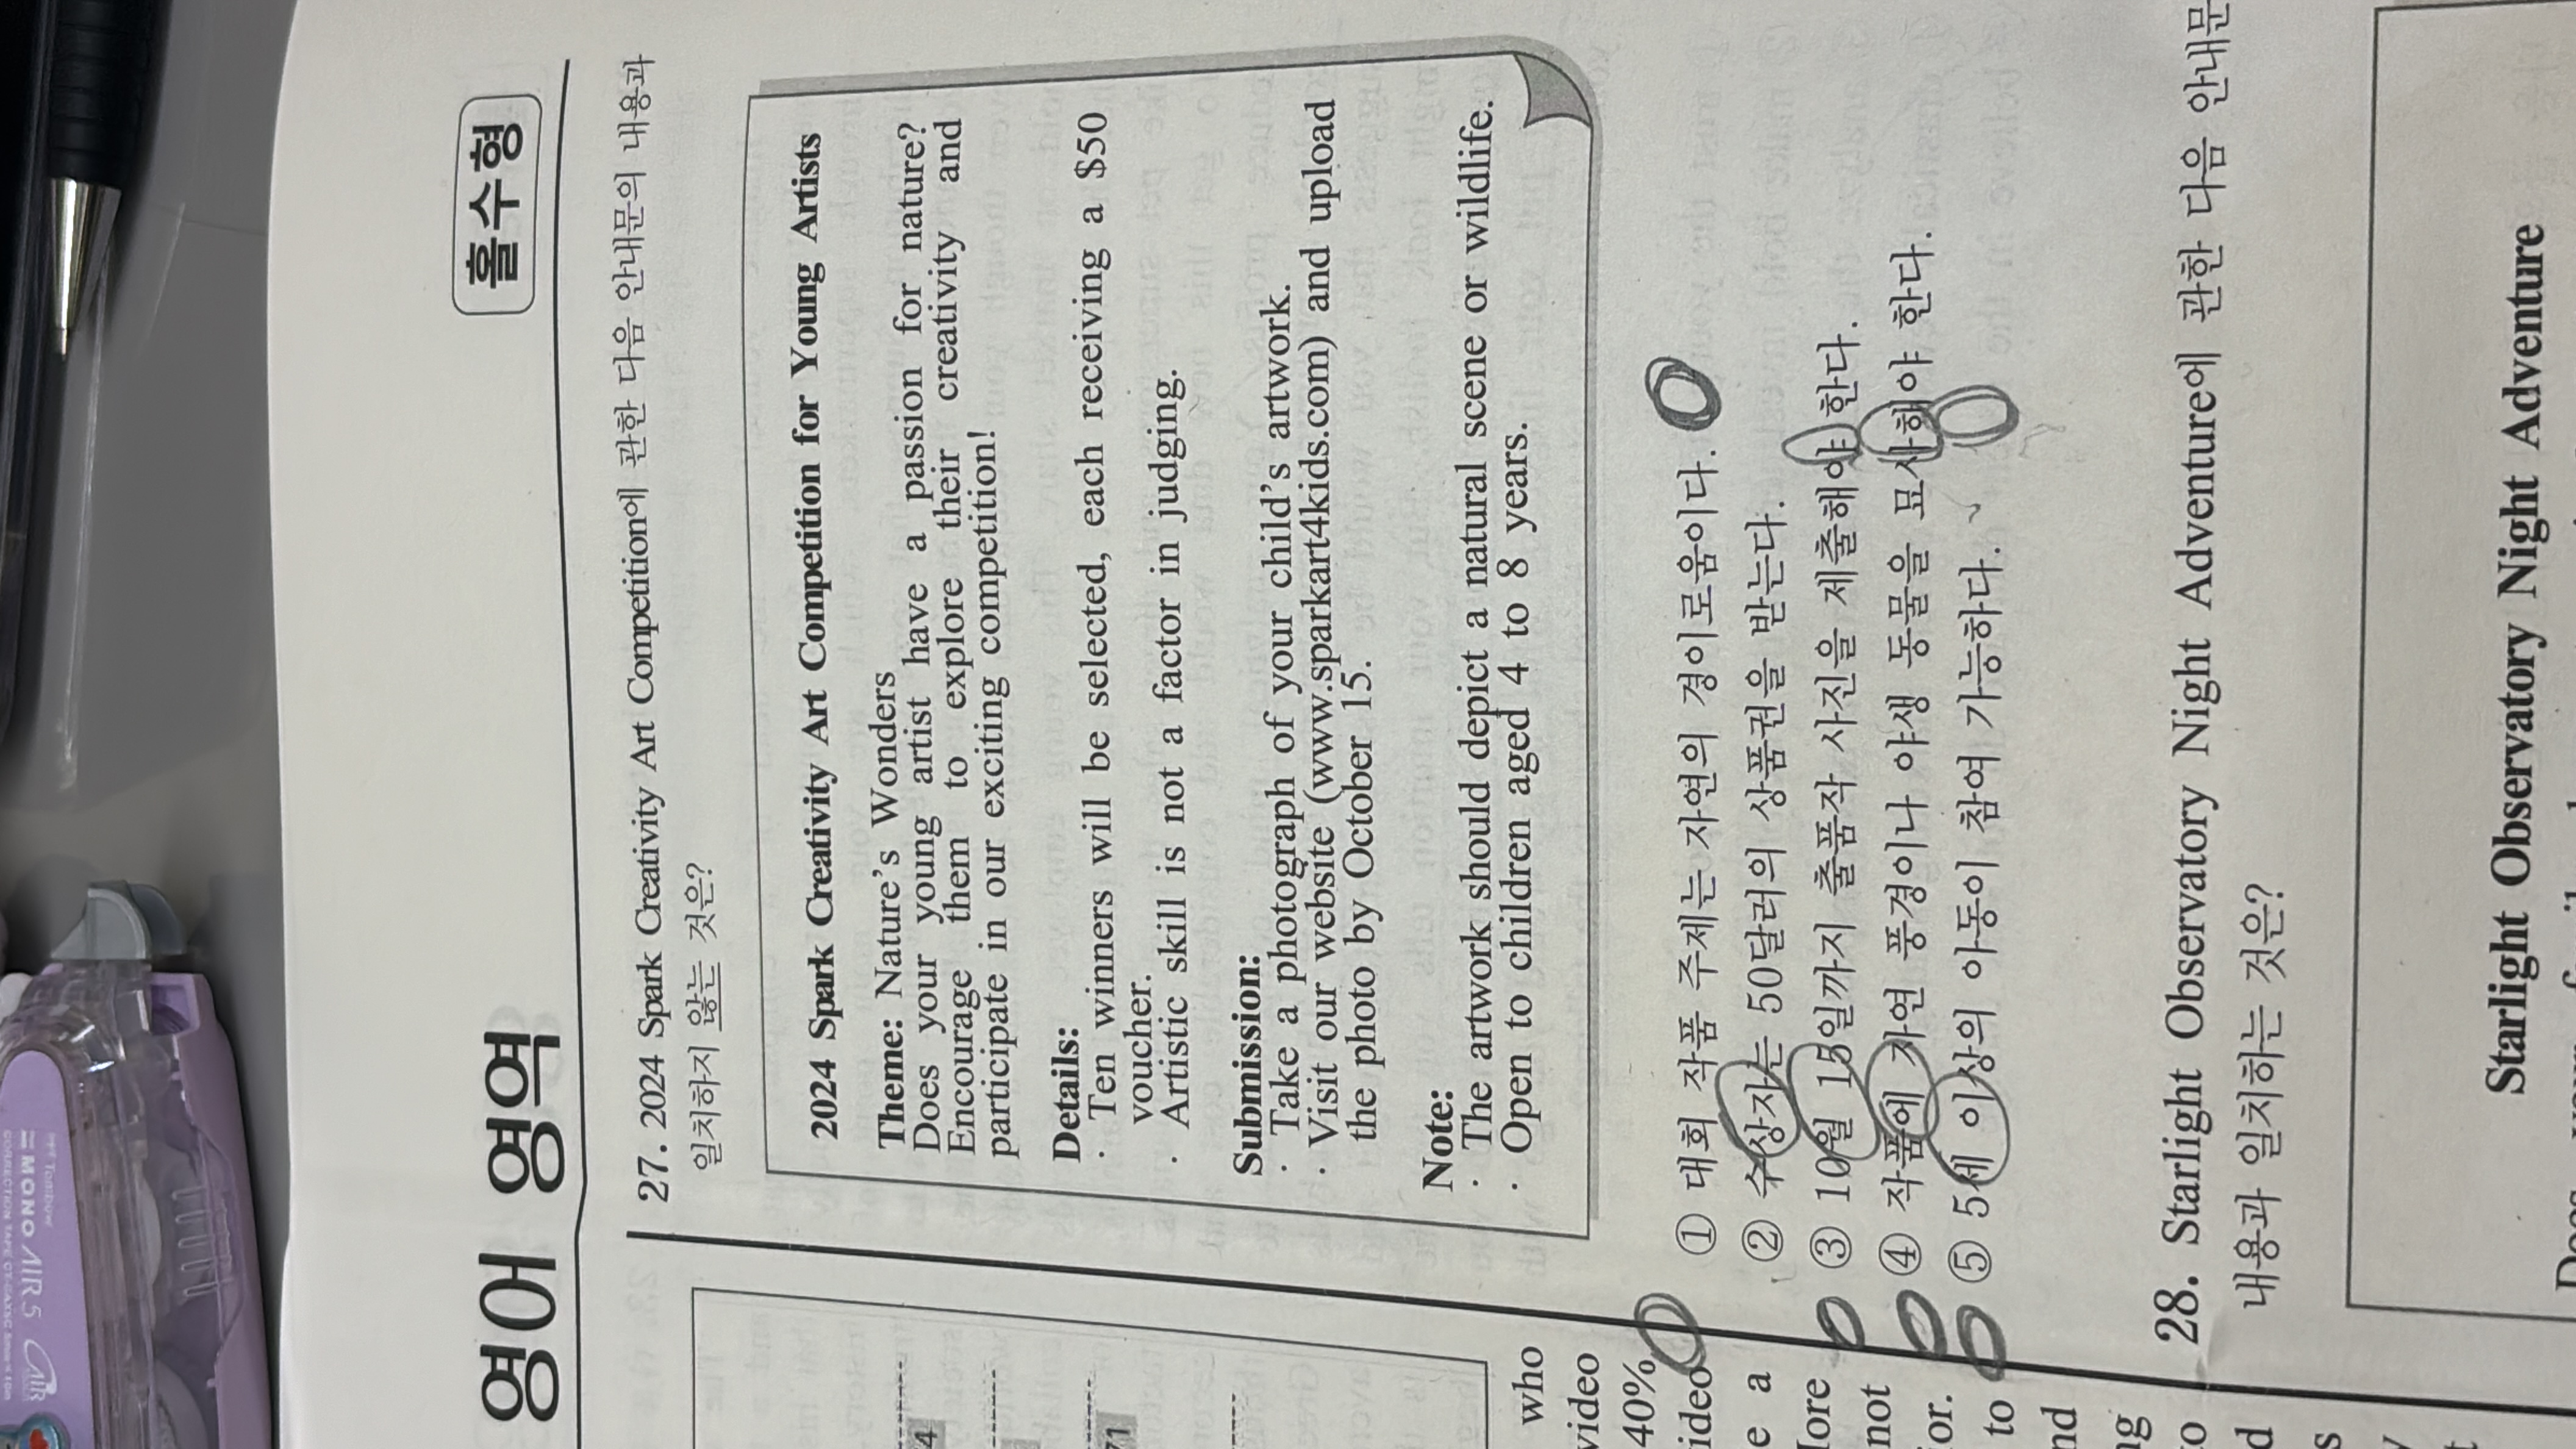 영어 영역
홀수형
27. 2024 Spark Creativity Art Competition에 관한 다음 안내문의 내용과
일치하지 않는 것은?
2024 Spark Creativity Art Competition for Young Artists
Theme: Nature's Wonders
Does your young artist have a passion for nature?
Encourage them to explore their creativity and
participate in our exciting competition!
Details:
· Ten winners will be selected, each receiving a $50
voucher.
· Artistic skill is not a factor in judging.
Submission:
· Take a photograph of your child's artwork.
· Visit our website (www.sparkart4kids.com) and upload
the photo by October 15.
Note:
· The artwork should depict a natural scene or wildlife.
· Open to children aged 4 to 8 years.
① 대회 작품 주제는 자연의 경이로움이다.
② 수상자는 50달러의 상품권을 받는다.
③ 10월 15일까지 출품작 사진을 제출해야 한다.
④ 작품에 자연 풍경이나 야생 동물을 묘사해야 한다.
⑤ 5세 이상의 아동이 참여 가능하다.
28. Starlight Observatory Night Adventure에 관한 다음 안내문
내용과 일치하는 것은?
Starlight Observatory Night Adventure
who
video
40%
ideo
e a
lore
not
ior.
to
nd
ng
to
d
s
y
4
71
Tombow
MONO AIR 5
AIR